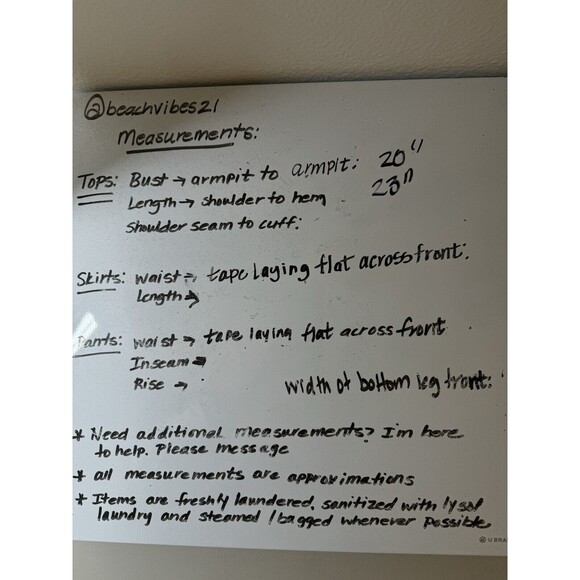 @beachvibes21
Measurements:
Tops: Bust → armpit to armpit: 20"
Length → shoulder to hem 23"
Shoulder seam to cuff:
Skirts: waist → tape laying flat across front:
Length →
Pants: waist → tape laying flat across front
Inseam →
Rise → width of bottom leg front:
* Need additional measurements? I'm here
to help. Please message
* all measurements are approximations
* Items are freshly laundered, sanitized with lysol
laundry and steamed / bagged whenever possible
U BRA